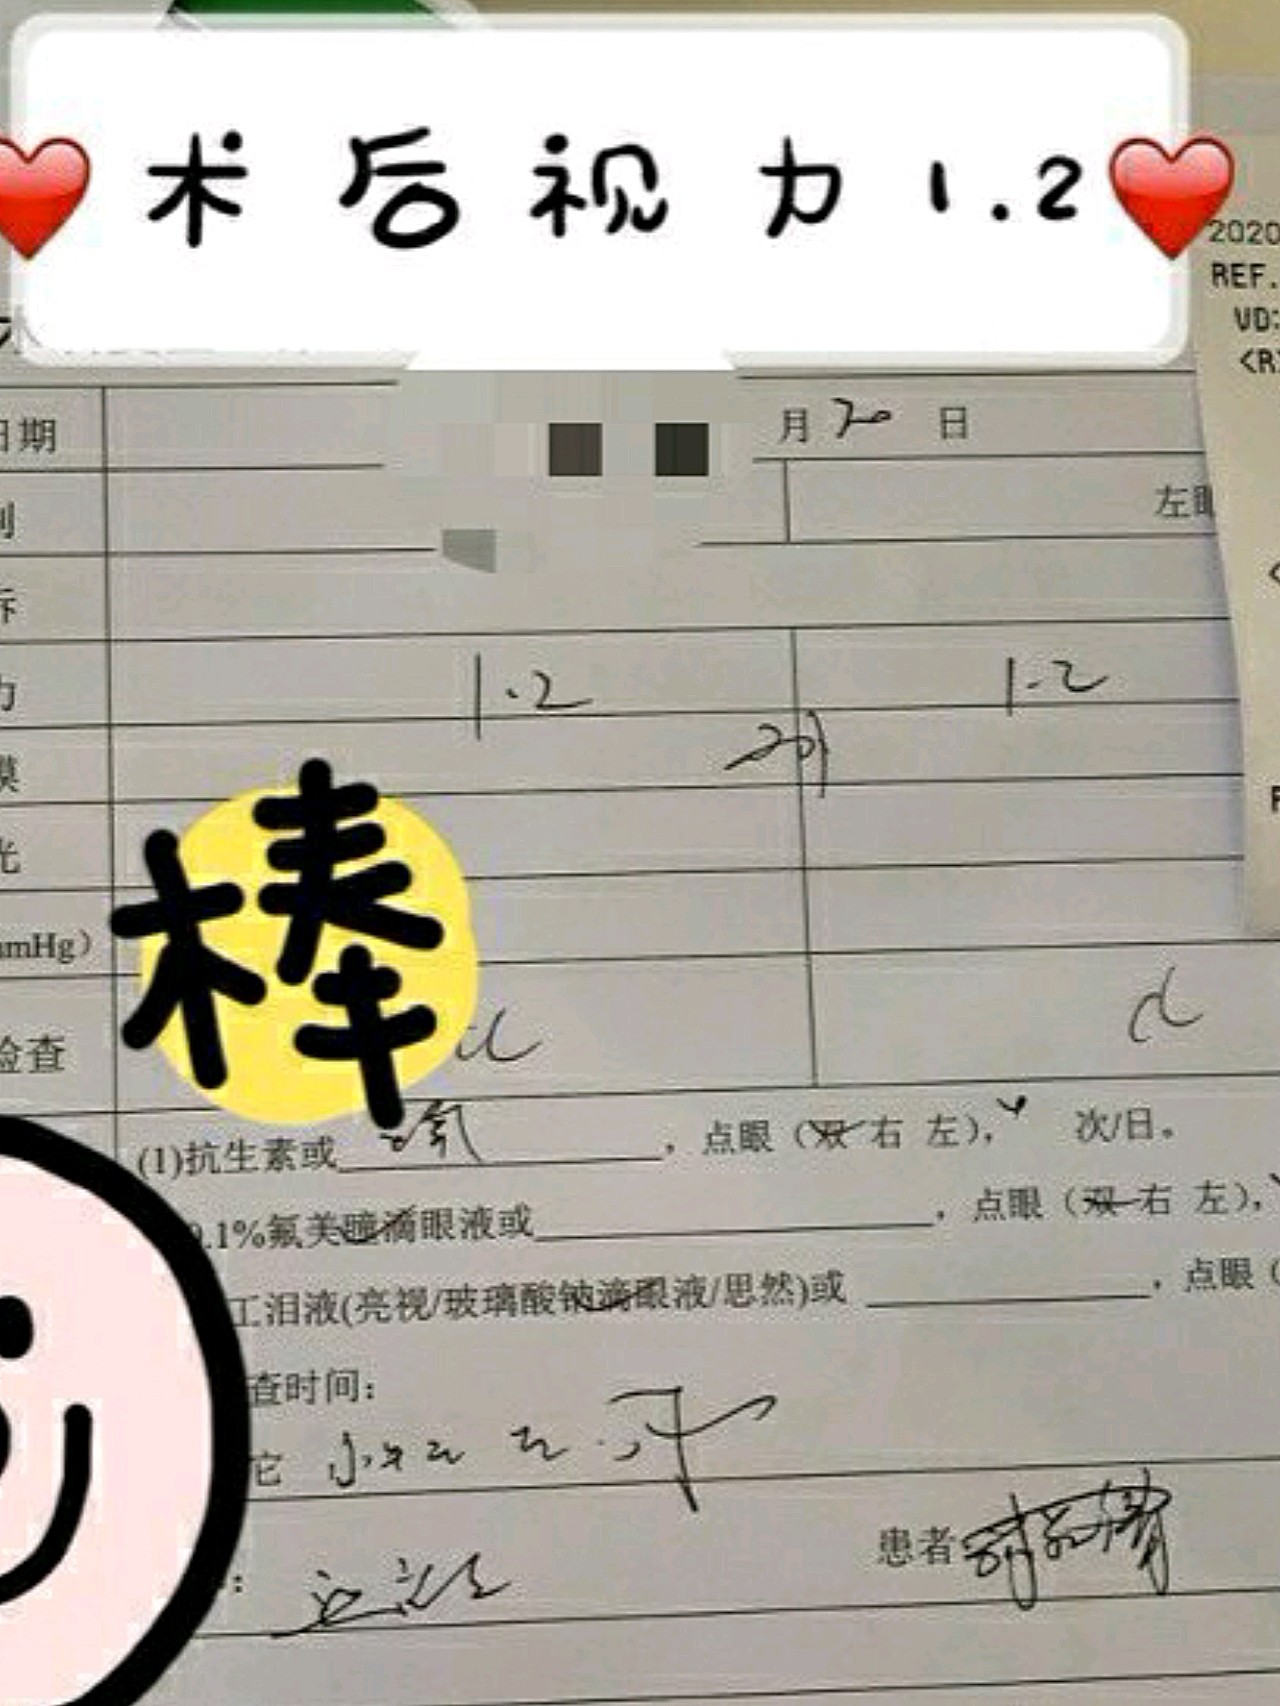 术后视力1.2
2020
REF.
VD:
<R
日期
月20日
左眼
诉
力 1.2 1.2
膜
光
棒
mmHg)
检查
(1)抗生素或 , 点眼(双 右 左), 次/日。
0.1%氟美瞳滴眼液或 , 点眼(双 右 左),
工泪液(亮视/玻璃酸钠滴眼液/思然)或 , 点眼(
查时间:
它
患者